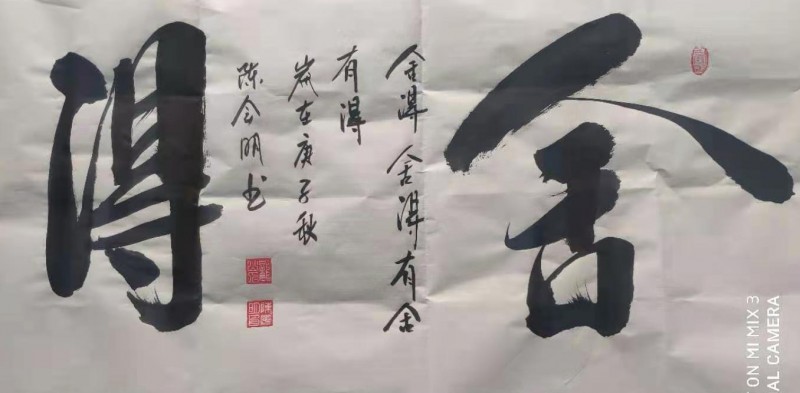 舍
舍得舍得有舍
有得
岁在庚子秋
陈令明书
得
ON MI MIX 3
AL CAMERA